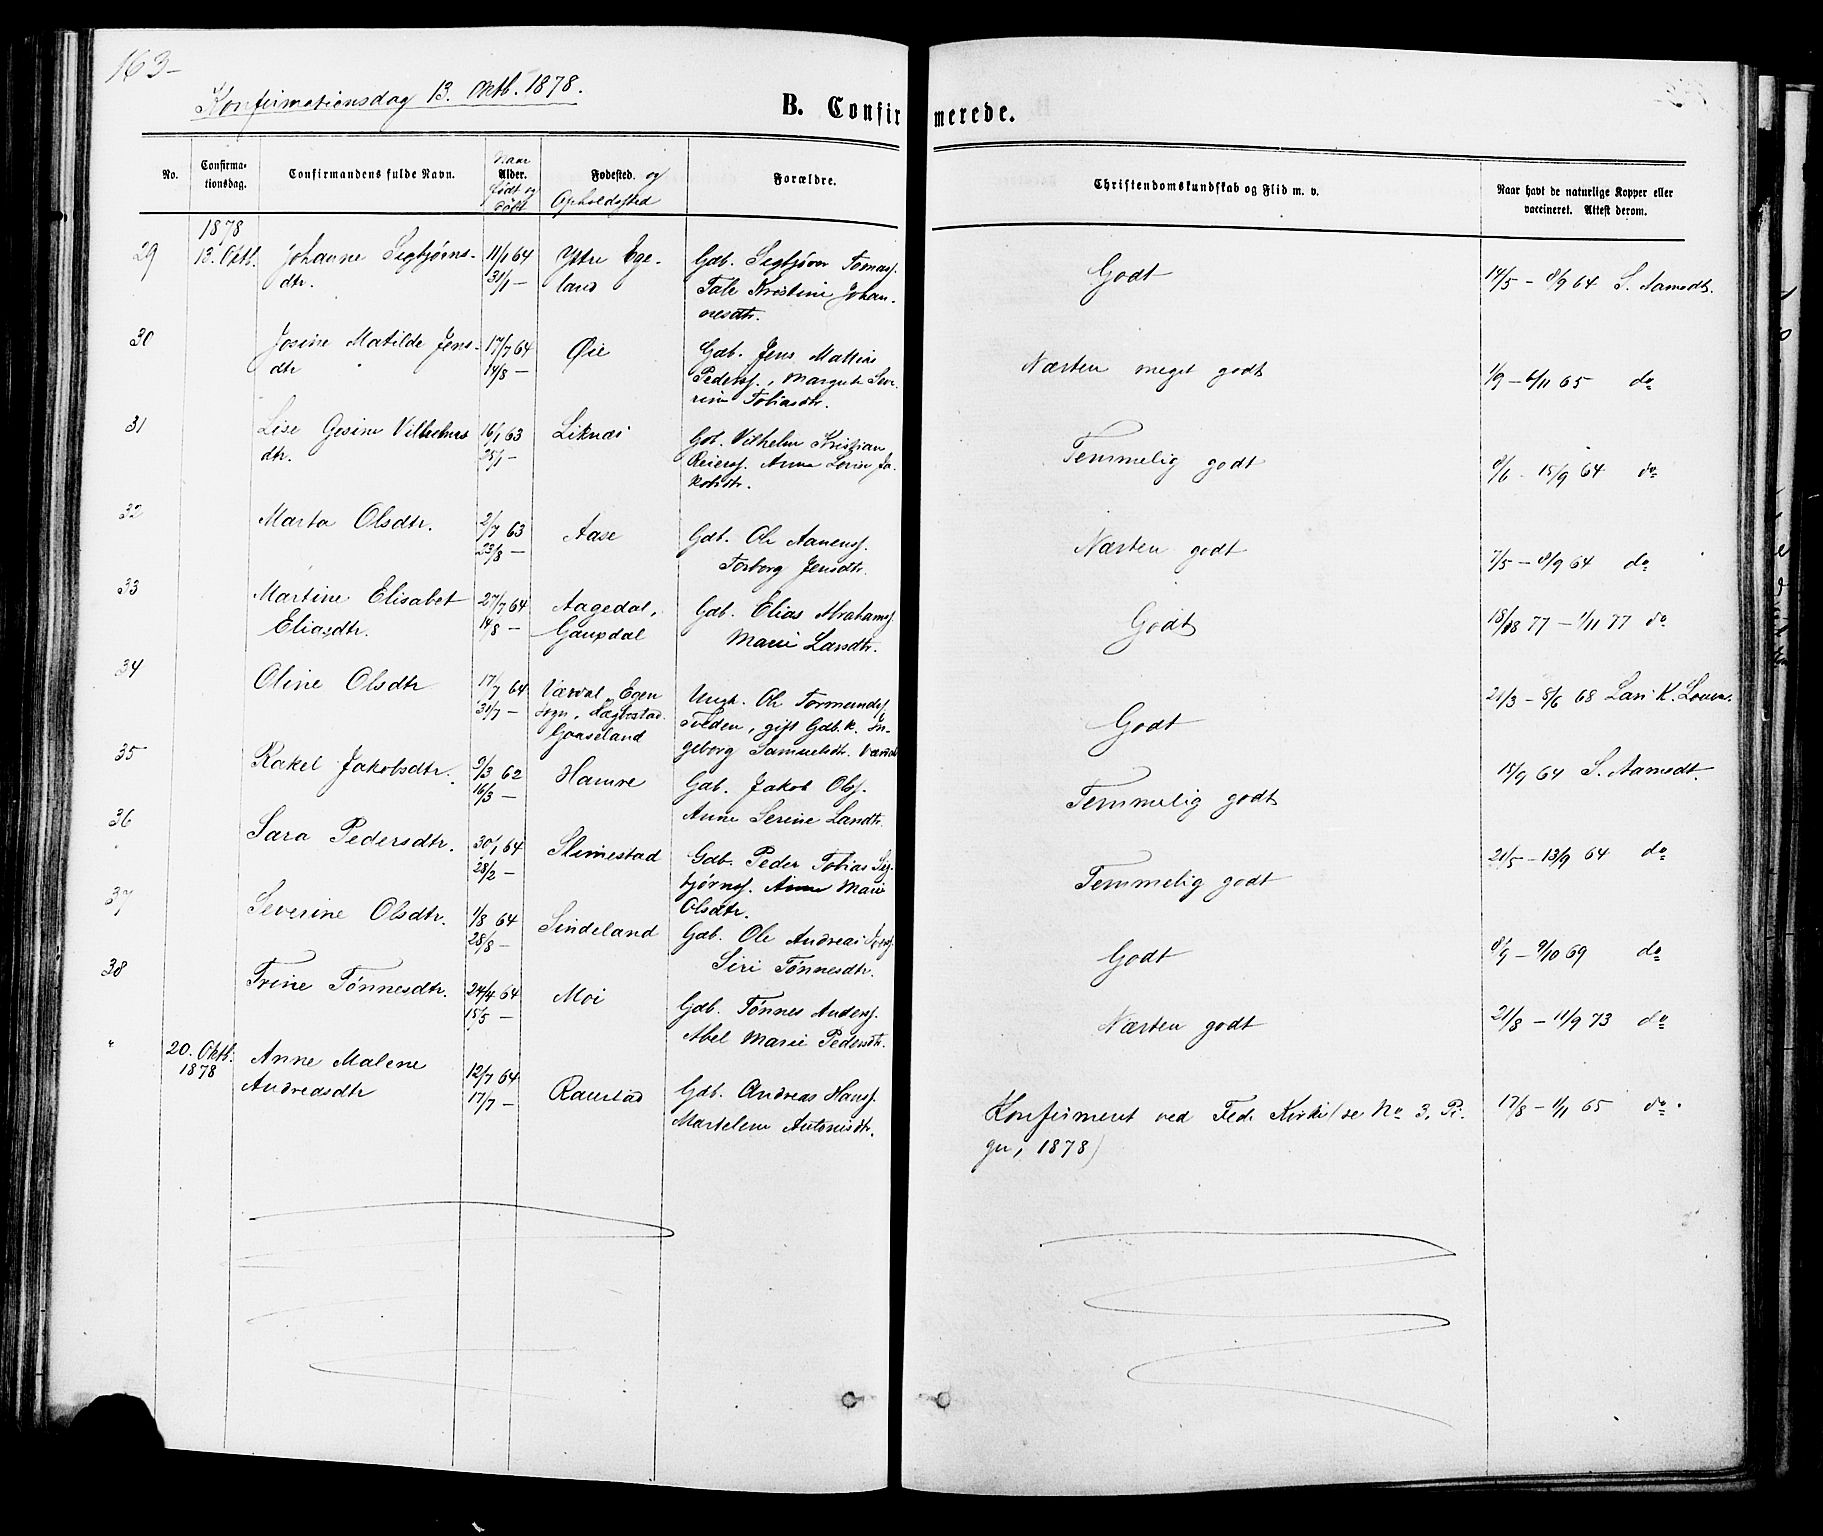 163-
Konfirmationsdag 13. Oktb. 1878.
B. Confirmerede.
No.
Confirma-
tionsdag.
Confirmandens fulde Navn.
Naar
Alder.
født og
døbt
Fødested. og
Opholdssted
Forældre.
Christendomskundskab og Flid m. v.
Naar havt de naturlige Kopper eller
vaccineret. Attest derom.
1878
29 13. Oktb. Johanne Sigbjørns- 11/1 64 Ytre Ege- Gdb. Sigbjørn Tomass. Godt 14/5 - 8/9 64 S. Aamodt.
dtr. 31/1 - land Tale Kristine Johan-
nesdtr.
30 Josine Matilde Jens- 17/7 64 Øie Gdb. Jens Mattias Næsten meget godt 1/9 - 6/11 65 do
dtr 14/8 - Peders., Margrete Seve-
rine Tobiasdtr.
31 Lise Gesine Vilhelms 16/1 63 Liknes Gdb. Vilhelm Kristian Temmelig godt 8/6 - 15/9 64 do
dtr. 25/1 - Reiers. Anna Lovise Ja-
kobsdtr.
32 Marta Olsdtr. 2/7 63 Aase Gdb. Ole Aanens. Næsten godt 7/5 - 8/9 64 do
23/8 - Torborg Jensdtr.
33 Martine Elisabet 27/7 64 Aagedal, Gdb. Elias Abrahams. Godt 18/08 77 - 1/11 77 do
Eliasdtr. 14/8 - Gaupdal Marie Larsdtr.
34 Oline Olsdtr 17/7 64 Værdal, Egen Ungk. Ole Tormunds. Godt 21/3 - 8/6 68 Lars K.
31/7 - sogn, Hægbostad. Tveden, gift Gdb.k. In-
Gaaseland geborg Samuelsdtr.
35 Rakel Jakobsdtr. 9/3 62 Hamre Gdb. Jakob Ols. Temmelig godt 15/9 64 S. Aamodt.
16/3 - Anne Serine Larsdtr.
36 Sara Pedersdtr. 30/1 64 Slimestad Gdb. Peder Tobias Sig- Temmelig godt 21/5 - 13/9 64 do
28/2 - bjørns. Anne Marie
Olsdtr.
37 Severine Olsdtr. 1/8 64 Sindeland Gdb. Ole Andreas Godt 8/9 - 9/10 69 do
28/8 - Siri Tønnesdtr.
38 Trine Tønnesdtr. 24/4 64 Moi Gdb. Tønnes Anders. Næsten godt 21/8 - 11/9 73 do
15/5 - Abel Marie Pedersdtr.
" 20. Oktb. Anne Malene 12/7 64 Raustad Gdb. Andreas Hans. Konfirmeret ved Feda Kirke (se No 3. Pi- 17/8 - 1/1 65 do.
1878 Andreasdtr 17/7 - Martelene Antonisdtr. ger, 1878)